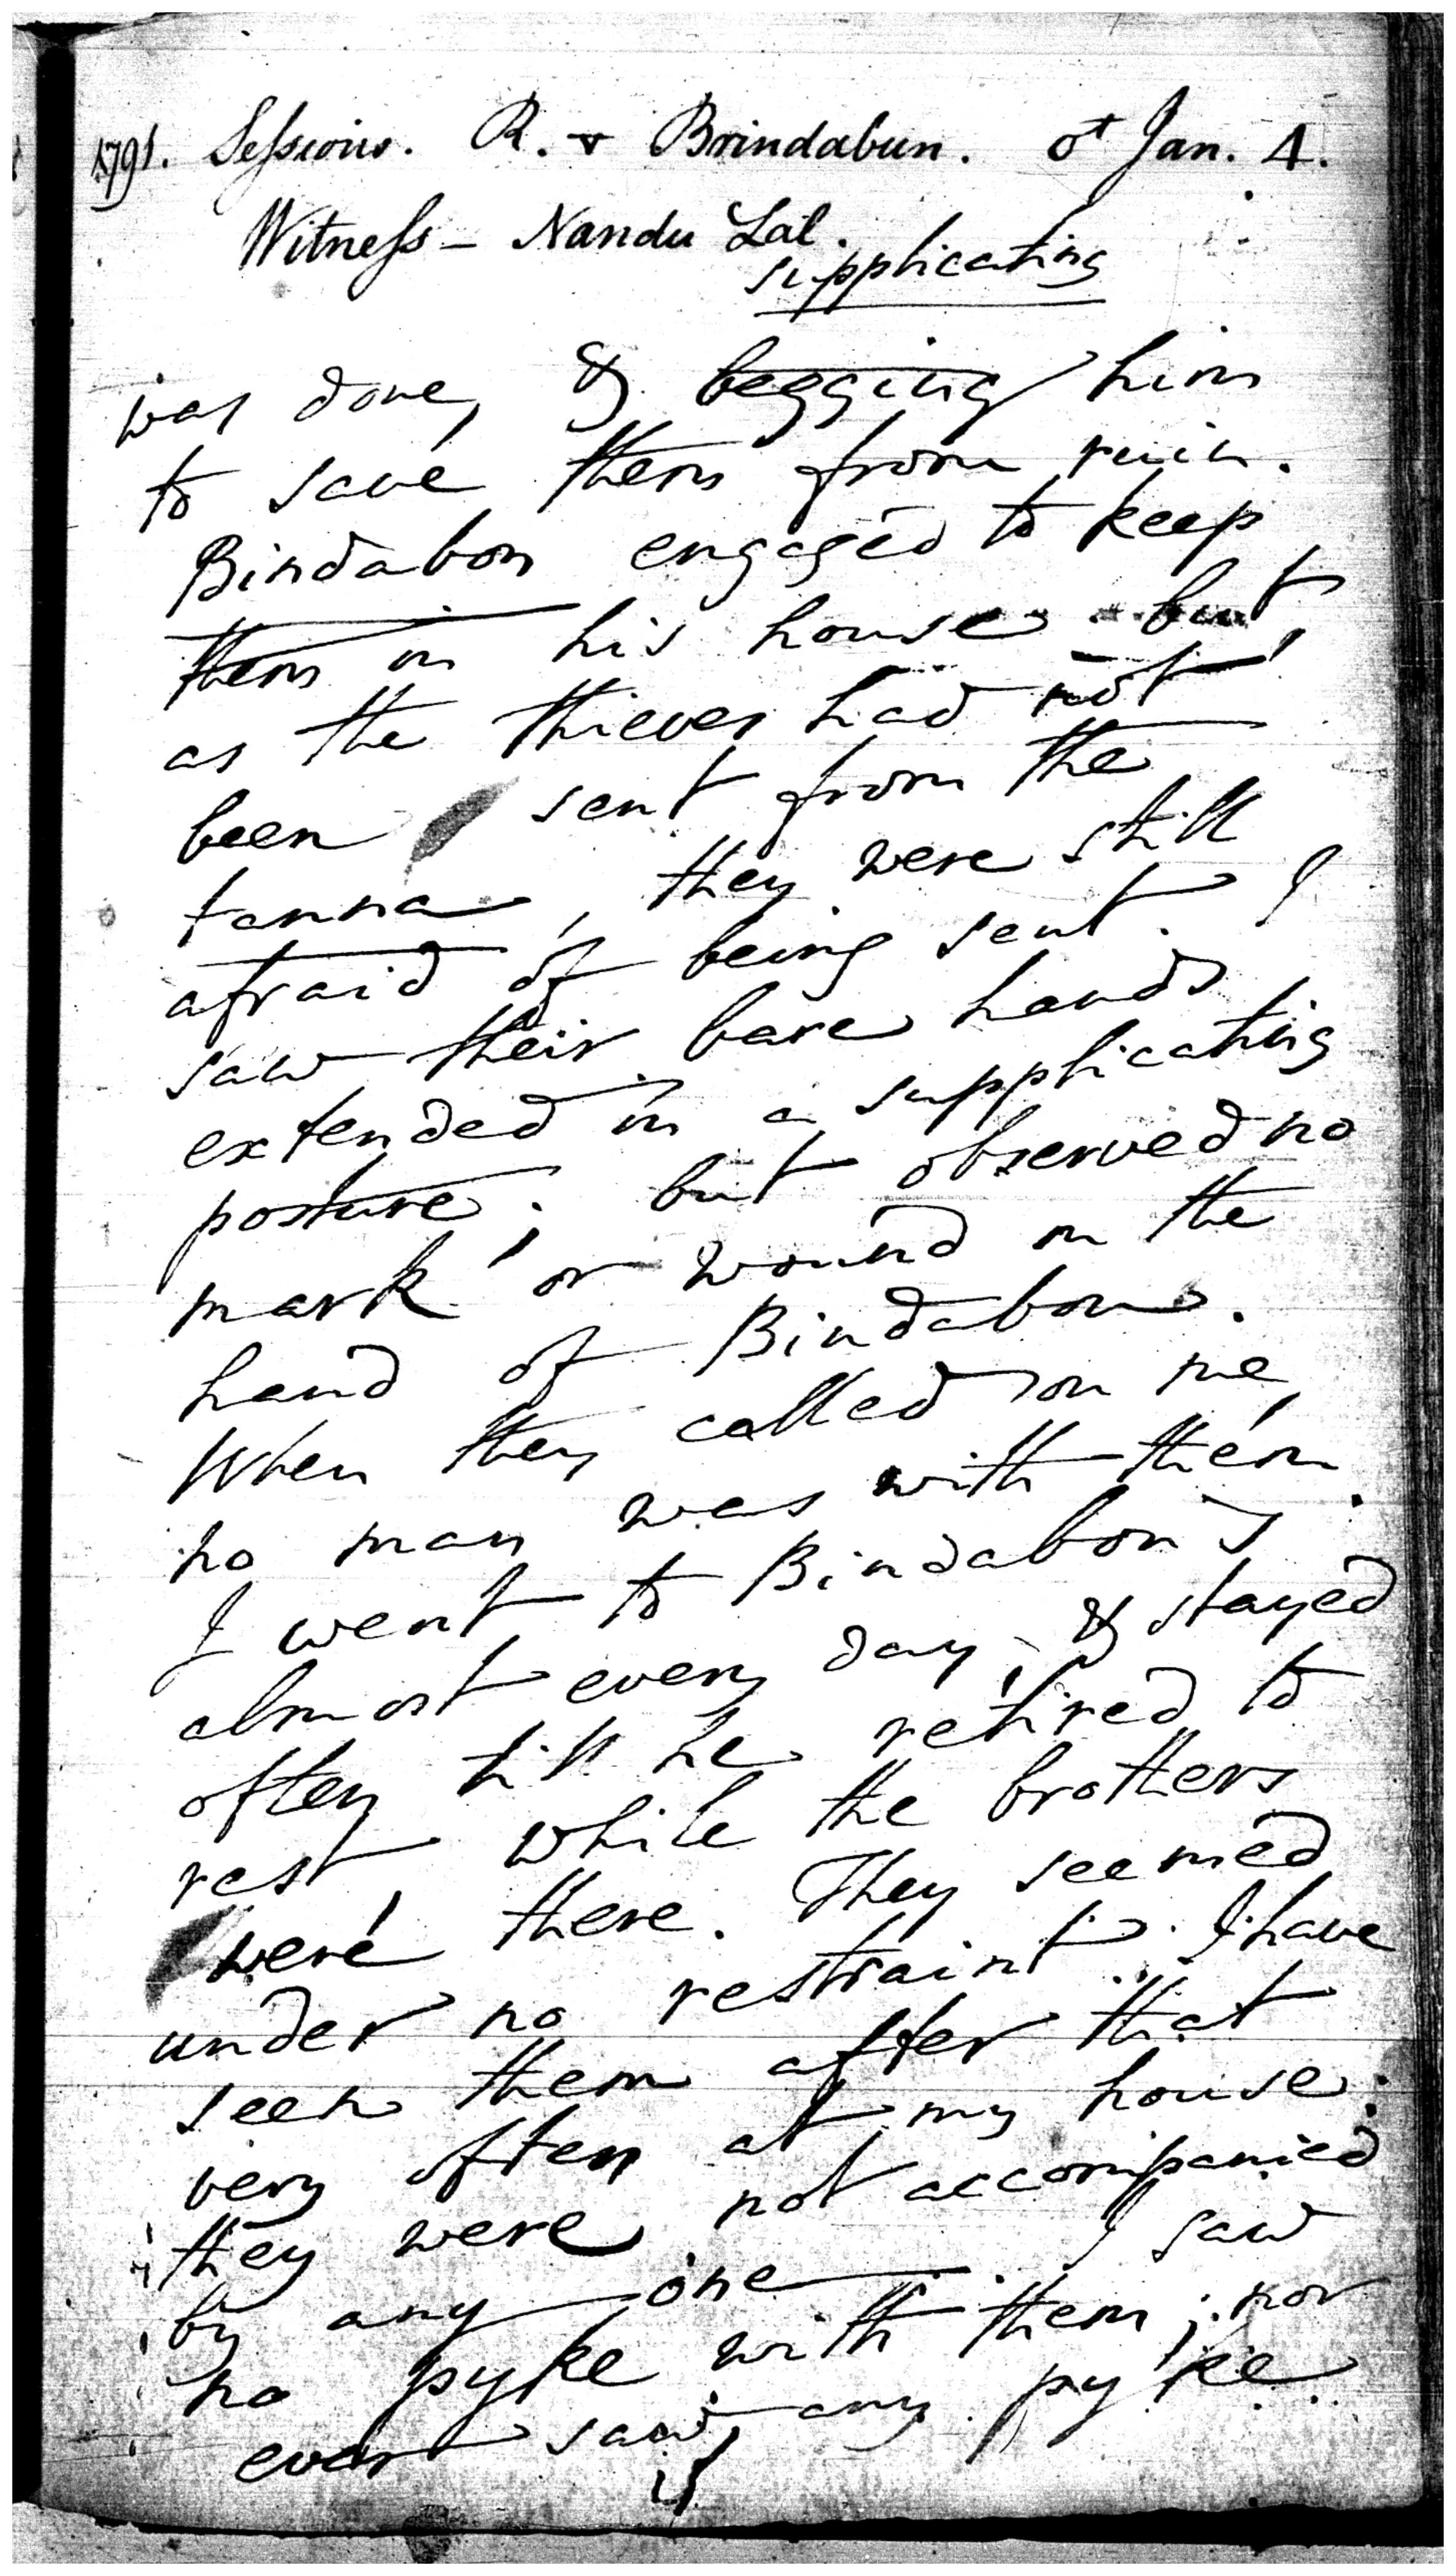 1791. Sessions. R. v Brindabun. Jan. 4.
Witness - Nandu Lal.
supplicating
was done, & begging him
to save them from ruin.
Bindabon engaged to keep
them in his house but,
as the thieves had not
been sent from the
tanna, they were still
afraid of being sent. I
saw their bare hands
extended in a supplicating
posture; but observed no
mark or wound on the
hand of Bindabon.
When they called on me,
no man was with them.
I went to Bindabon's
almost every day, & stayed
often till he retired to
rest, while the brothers
were there. They seemed
under no restraint. I have
seen them after that
very often at my house:
they were not accompanied
by any one. I saw
no pyke with them; nor
ever saw any pyke